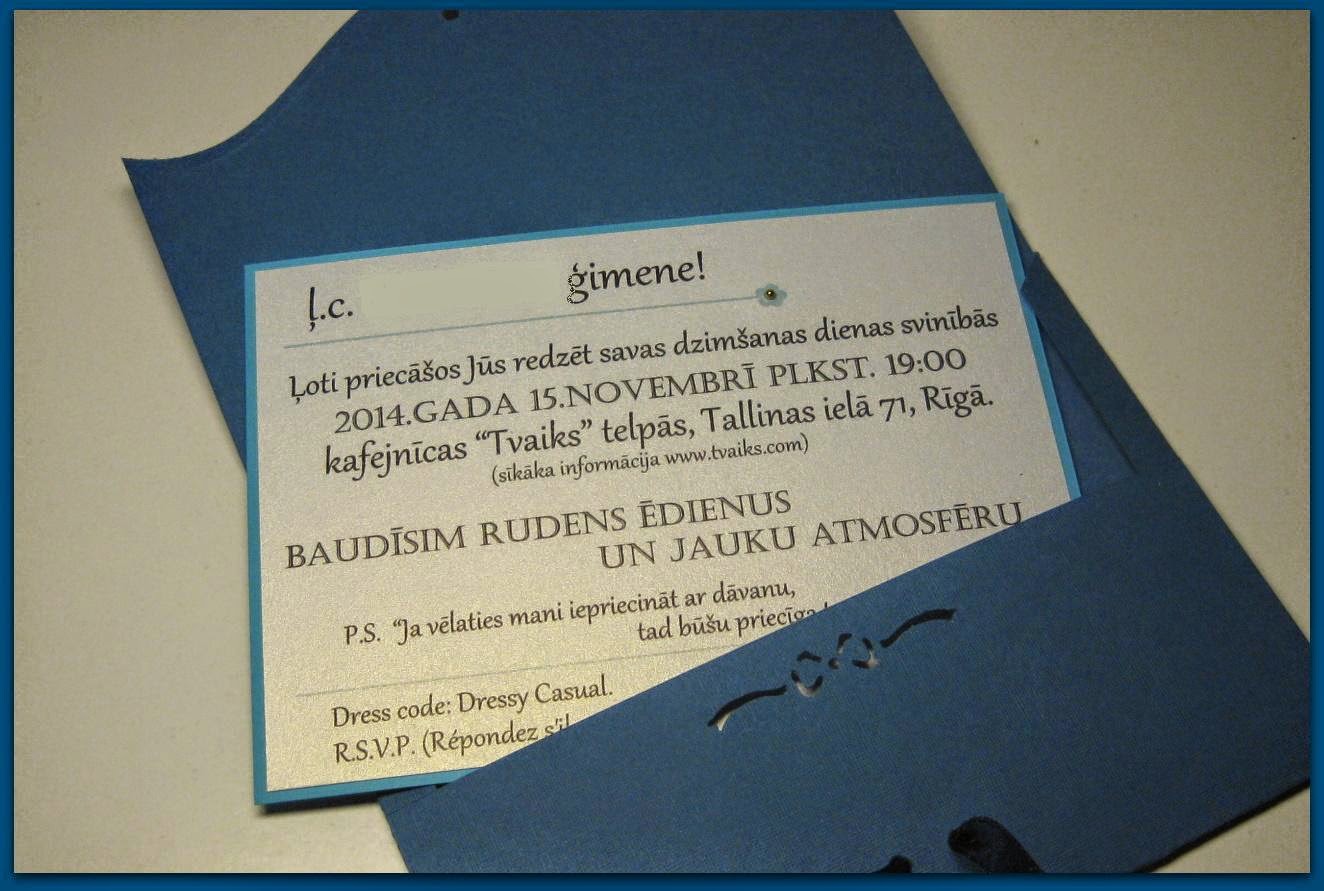 ļ.c. ģimene!
Ļoti priecāšos Jūs redzēt savas dzimšanas dienas svinībās
2014.GADA 15.NOVEMBRĪ PLKST. 19:00
kafejnīcas “Tvaiks” telpās, Tallinas ielā 71, Rīgā.
(sīkāka informācija www.tvaiks.com)
BAUDĪSIM RUDENS ĒDIENUS
UN JAUKU ATMOSFĒRU
P.S. “Ja vēlaties mani iepriecināt ar dāvanu,
tad būšu priecīga
Dress code: Dressy Casual.
R.S.V.P. (Répondez s'il